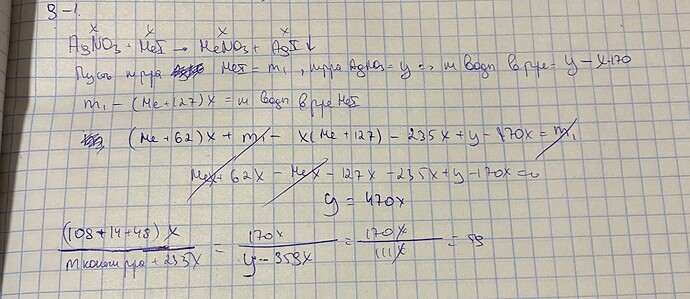 3-1.
x x x x
AgNO3 + MeI → MeNO3 + AgI↓
Пусть m рра MeI = m1, m рра AgNO3 = y => m воды в рре = y - x·170
m1 - (Me+127)x = m воды в рре MeI
(Me+62)x + m1 - x(Me+127) - 235x + y - 170x = m1
Mex + 62x - Mex - 127x - 235x + y - 170x = 0
y = 470x
(108+14+48)x / m + 235x = 170x / y - 359x = 170x / 111x = 59